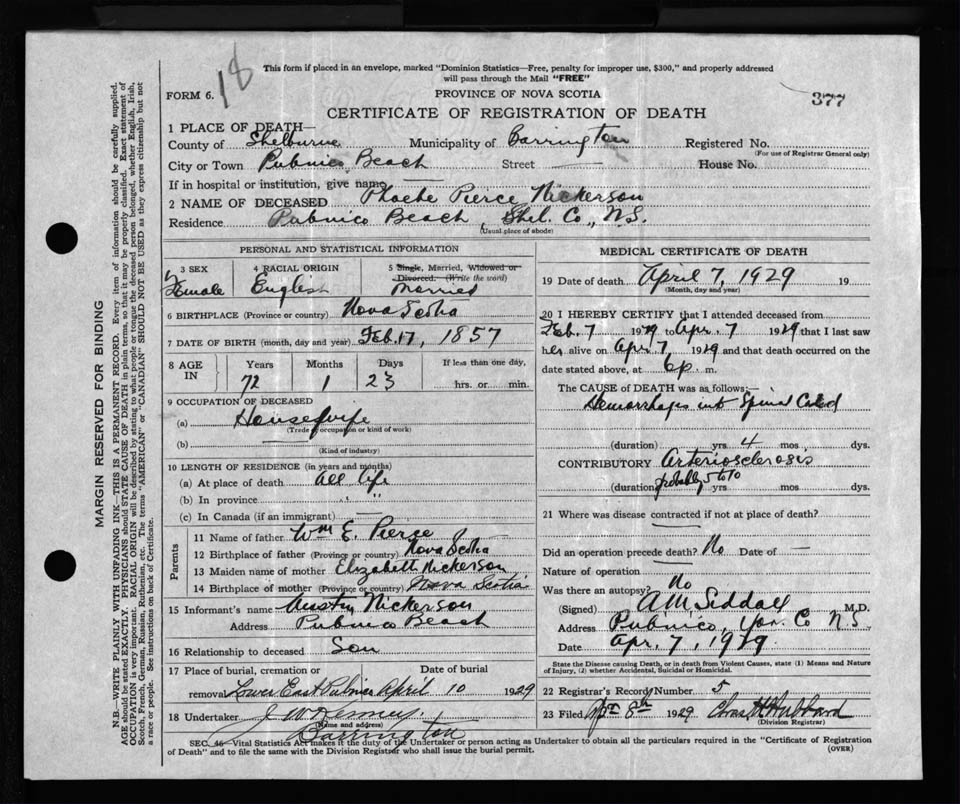 18
This form if placed in an envelope, marked "Dominion Statistics—Free, penalty for improper use, $300," and properly addressed
will pass through the Mail "FREE"
FORM 6.
PROVINCE OF NOVA SCOTIA
377
CERTIFICATE OF REGISTRATION OF DEATH
1 PLACE OF DEATH—
County of Shelburne Municipality of Barrington Registered No.
(For use of Registrar General only)
City or Town Pubnico Beach Street — House No.
If in hospital or institution, give name —
2 NAME OF DECEASED Phoebe Pierce Nickerson
Residence Pubnico Beach, Shel. Co., N.S.
(Usual place of abode)
PERSONAL AND STATISTICAL INFORMATION
3 SEX 4 RACIAL ORIGIN 5 Single, Married, Widowed or
Divorced. (Write the word)
Female English Married
6 BIRTHPLACE (Province or country) Nova Scotia
7 DATE OF BIRTH (month, day and year) Feb. 17, 1857
8 AGE IN Years Months Days If less than one day,
72 1 23 hrs. or min.
9 OCCUPATION OF DECEASED
(a) Housewife
(Trade or occupation or kind of work)
(b)
(Kind of industry)
10 LENGTH OF RESIDENCE (in years and months)
(a) At place of death all life
(b) In province " "
(c) In Canada (if an immigrant) —
Parents
11 Name of father Wm E. Pierce
12 Birthplace of father (Province or country) Nova Scotia
13 Maiden name of mother Elizabeth Nickerson
14 Birthplace of mother (Province or country) Nova Scotia
15 Informant's name Austin Nickerson
Address Pubnico Beach
16 Relationship to deceased Son
17 Place of burial, cremation or Date of burial
removal Lower East Pubnico April 10 1929
18 Undertaker J. W.
(Name and address)
Barrington
MEDICAL CERTIFICATE OF DEATH
19 Date of death April 7, 1929 19
(Month, day and year)
20 I HEREBY CERTIFY that I attended deceased from
Feb. 7 1929 to Apr. 7 1929 that I last saw
her alive on Apr 7, 1929 and that death occurred on the
date stated above, at 6 p. m.
The CAUSE of DEATH was as follows:—
into Spinal
(duration) yrs 4 mos dys.
CONTRIBUTORY Arteriosclerosis
(duration) probably 5 to 10 yrs mos dys.
21 Where was disease contracted if not at place of death?
—
Did an operation precede death? No Date of —
Nature of operation
Was there an autopsy? No
(Signed) A.M. Siddall M.D.
Address Pubnico, Yar. Co N.S
Date Apr. 7, 1929
State the Disease causing Death, or in death from Violent Causes, state (1) Means and Nature
of Injury, (2) whether Accidental, Suicidal or Homicidal.
22 Registrar's Record Number 5
23 Filed Apr 8th 1929 Chas H Hubbard
(Division Registrar)
SEC. 46 Vital Statistics Act makes it the duty of the Undertaker or person acting as Undertaker to obtain all the particulars required in the "Certificate of Registration
of Death" and to file the same with the Division Registrar who shall issue the burial permit.
(OVER)
MARGIN RESERVED FOR BINDING
N.B.—WRITE PLAINLY WITH UNFADING INK—THIS IS A PERMANENT RECORD. Every items of information should be carefully supplied.
AGE should be stated EXACTLY. PHYSICIANS should STATE CAUSE OF DEATH in plain terms, so that it may be properly classified. Exact statement of
OCCUPATION is very important. RACIAL ORIGIN will be described by stating to what people or tongue the deceased person belonged, whether English, Irish,
Scotch, French, German, Russian, Ruthenian, etc. The terms "AMERICAN" or "CANADIAN" SHOULD NOT BE USED as they express citizenship but not
a race or people. See instructions on back of Certificate.